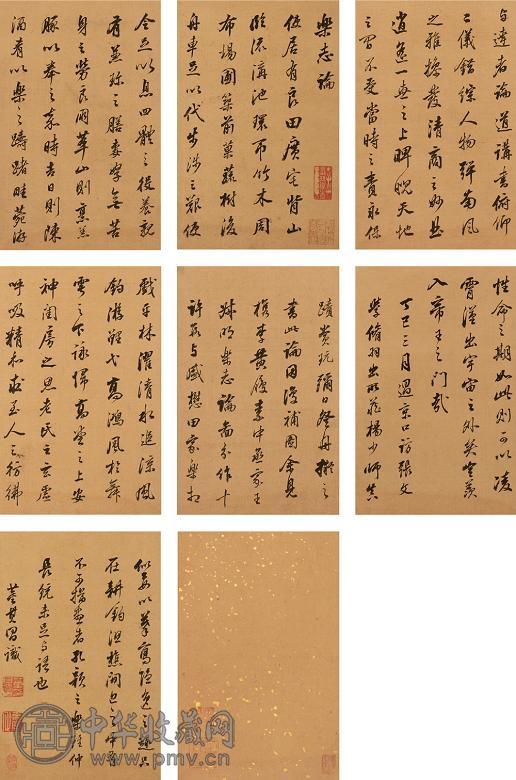 樂志論
使居有良田廣宅背山
臨流溝池環帀竹木周
布場圃築前菓蔬樹後
舟車足以代步涉之難使
足以息四體之役養親
有兼珍之膳妻孥無苦
身之勞良朋萃止則烹羔
豚以奉之嘉時吉日則陳
酒肴以樂之躊躇畦苑游
戲平林濯清水追涼風
釣游鯉弋高鴻風於舞
雩之下詠歸高堂之上安
神閨房之思老氏之玄虛
呼吸精和求至人之彷彿
与達者論道講書俯仰
二儀錯綜人物彈南風
之雅操發清商之妙曲
逍遙一世之上睥睨天地
之間不受當時之責永保
性命之期如此則可以凌
霄漢出宇宙之外矣豈羨
入帝王之門哉
丁巳三月過京口訪張文
學脩羽出所藏楊少師真
蹟賞玩彌日登舟擬之
書此論因復補圖余見
檇李黃履素中丞家王
叔明樂志論圖分作十
許段与盛懋田家樂相
似要以摹寫隱逸之趣只
在耕釣漁樵間也
不可描畫者孔顏之樂雖仲
長統未足与語也
董其昌識
中华收藏网
www.pmv.cn